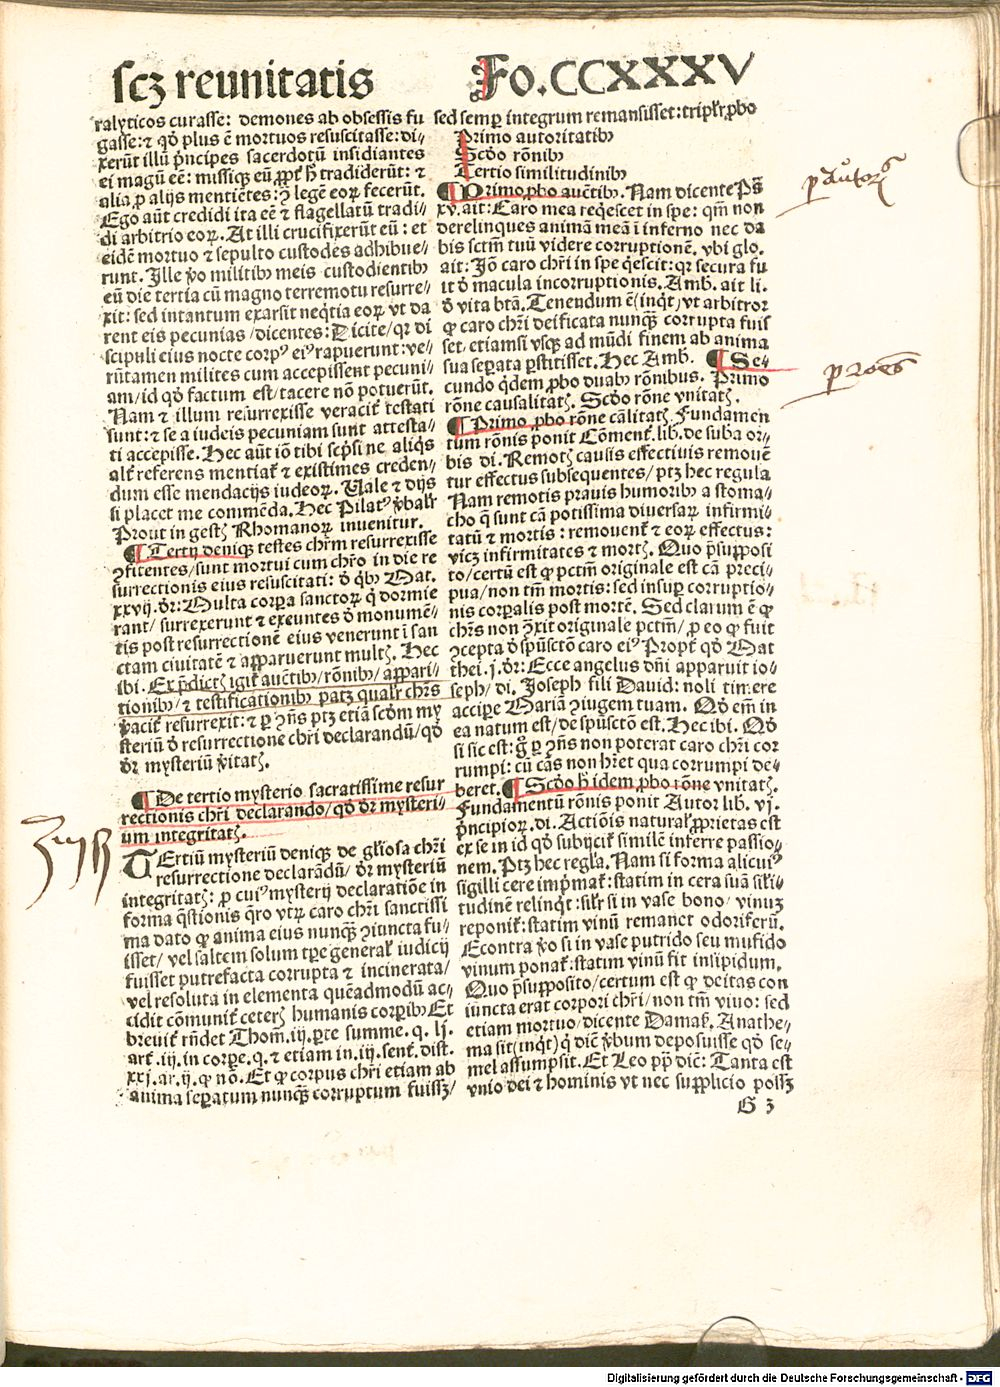 scꝫ reunitatis
Fo.CCXXXV
ralyticos curasse: demones ab obsessis fu
gasse: ⁊ qd̓ plus ē mortuos resuscitasse: di⸗
xerūt illū pn̄cipes sacerdotū insidiantes
ei magū eē: missiqꝫ eū ꝓpt̄ h̄ tradiderūt: ⁊
alia ꝓ alijs mentiētes: ꝯ legē eoꝝ fecerūt.
Ego aūt credidi ita eē ⁊ flagellatū tradi⸗
di arbitrio eoꝝ. At illi crucifixerūt eū: et
eidē mortuo ⁊ sepulto custodes adhibue⸗
runt. Ille ꝟo militibꝫ meis custodientibꝫ
eū die tertia cū magno terremotu resurre⸗
xit: sed intantum exarsit neq̄tia eoꝝ vt da
rent eis pecunias/dicentes: Dicite/ qꝛ di
scipuli eius nocte corpꝰ eiꝰ rapuerunt: ve⸗
rūtamen milites cum accepissent pecuni⸗
am/ id qd̓ factum est/ tacere nō potuerūt.
Nam ⁊ illum resurrexisse veracit̄ testati
sunt: ⁊ se a iudeis pecuniam sunt attesta⸗
ti accepisse. Hec aūt iō tibi scp̄si ne aliq̄s
alr̄ referens mentiat̄ ⁊ existimes creden⸗
dum esse mendacijs iudeoꝝ. Vale ⁊ dijs
si placet me commēda. Hec Pilatꝰ ꝟbalr̄
Prout in gestꝭ Rhomanoꝝ inuenitur.
¶ Tertij deniqꝫ testes chr̄m resurrexisse
ꝯfitentes/ sunt mortui cum chr̄o in die re
surrectionis eius resuscitati: d̓ qbꝫ Mat.
xxvij. dr̄: Multa corpa sanctoꝝ q̄ dormie
rant/ surrexerunt ⁊ exeuntes d̓ monumē⸗
tis post resurrectionē eius venerunt ī san
ctam ciuitatē ⁊ apparuerunt multꝭ. Hec
ibi. Ex p̄dictꝭ igit̄ auc̄tibꝫ/ rōnibꝫ/ appari⸗
tionibꝫ/ ⁊ testificationibꝫ patꝫ qualr̄ chr̄s
ꝟacit̄ resurrexit: ⁊ ꝑ ꝯn̄s ptꝫ etiā scd̓m my
steriū d̓ resurrectione chr̄i declarandū/ qd̓
dr̄ mysteriū ꝟitatꝭ.
¶ De tertio mysterio sacratissime resur
rectionis chr̄i declarando/ qd̓ dr̄ mysteri⸗
um integritatꝭ.
TErtiū mysteriū deniqꝫ de gl̄iosa chr̄i
resurrectione declarādū/ dr̄ mysteriū
integritatꝭ: ꝓ cuiꝰ mysterij declaratiōe in
forma q̄stionis q̄ro vtꝝ caro chr̄i sanctissi
ma dato ꝙ anima eius nunqꝫ̄ ꝯiuncta fu⸗
isset/ vel saltem solum tꝑe general̄ iudicij
fuisset putrefacta corrupta ⁊ incinerata/
vel resoluta in elementa quēadmodū ac⸗
cidit cōmunit̄ ceterꝭ humanis corꝑibꝫ Et
breuit̄ rn̄det Thom̄. iij. ꝑte summe. q. lj.
art̄. iij. in corpe. q. ⁊ etiam in. iij. sent̄. dist.
xxj. ar. ij. ꝙ nō. Et ꝙ corpus chr̄i etiam ab
anima sepatum nunqꝫ̄ corruptum fuissꝫ/
sed semꝑ integrum remansisset: triplr̄ ꝓbo
Primo autoritatibꝫ
Scd̓o rōnibꝫ
Tertio similitudinibꝫ
¶ Primo ꝓbo auc̄tibꝫ. Nam dicente Ps̄
xv. ait: Caro mea reqꝫescet in spe: qm̄ non
derelinques animā meā ī inferno nec da
bis sctm̄ tuū videre corruptionē. vbi glo.
ait: Jō caro chr̄i in spe q̇escit: qꝛ secura fu
it d̓ macula incorruptionis. Amb̄. ait li.
d̓ vita btā. Tenendum ē (inq̇t) vt arbitror
ꝙ caro chr̄i deificata nunqꝫ̄ corrupta fuis
set/ etiamsi vsqꝫ ad mūdi finem ab anima
sua sepata ꝑstitisset. Hec Amb. ¶ Se⸗
cundo q̇dem ꝓbo duabꝫ rōnibus. Primo
rōne causalitatꝭ. Scd̓o rōne vnitatꝭ.
¶ Primo ꝓbo rōne cālitatꝭ Fundamen
tum rōnis ponit Cōment̄. lib. de suba or⸗
bis di. Remotꝭ causis effectiuis remouen̄
tur effectus subsequentes/ ptꝫ hec regula
Nam remotis prauis humoribꝫ a stoma⸗
cho q̄ sunt cā potissima diuersaꝝ infirmi⸗
tatū ⁊ mortis: remouent̄ ⁊ eoꝝ effectus:
vicꝫ infirmitates ⁊ mortꝭ. Quo p̄supposi
to/ certū est ꝙ pctm̄ originale est cā preci⸗
pua/ non tm̄ mortis: sed insuꝑ corruptio⸗
nis corꝑalis post mortē. Sed clarum ē ꝙ
chr̄s non ꝯ̄xit originale pctm̄/ ꝓ eo ꝙ fuit
ꝯcepta d̓ spūsctō caro eiꝰ Propt̄ qd̓ Mat
thei. j. dr̄: Ecce angelus dn̄i apparuit io⸗
seph/ di. Joseph fili Dauid: noli timere
accipe Mariā ꝯiugem tuam. Qd̓ em̄ in
ea natum est/ de spūsctō est. Hec ibi. Qd̓
si sic est: gͦ ꝑ ꝯn̄s non poterat caro chr̄i cor
rumpi: cū cās non hr̄et qua corrumpi de⸗
beret. ¶ Scd̓o h̄ idem ꝓbo rōne vnitatꝭ.
Fundamentū rōnis ponit Autor lib. vj.
pn̄cipioꝝ. di. Actiōis natural̄ ꝓprietas est
ex se in id qd̓ subijcit̄ similē inferre passio⸗
nem. Ptꝫ hec regl̄a. Nam si forma alicuiꝰ
sigilli cere imp̄mat̄: statim in cera suā sil̄i⸗
tudinē relinq̇t: silr̄ si in vase bono/ vinuꝫ
reponit̄: statim vinū remanet odoriferū.
Econtra ꝟo si in vase putrido seu mufido
vinum ponat̄: statum vinū fit insipidum.
Quo p̄supposito/ certum est ꝙ deitas con
iuncta erat corpori chr̄i/ non tm̄ viuo: sed
etiam mortuo/ dicente Damas̄. Anathe⸗
ma sit (inq̇t) q̇ diēt̄ ꝟbum deposuisse qd̓ se⸗
mel assumpsit. Et Leo pp̄ diēt̄: Tanta est
vnio dei ⁊ hominis vt nec supplicio possꝫ
G 3
Digitalisierung gefördert durch die Deutsche Forschungsgemeinschaft - DFG